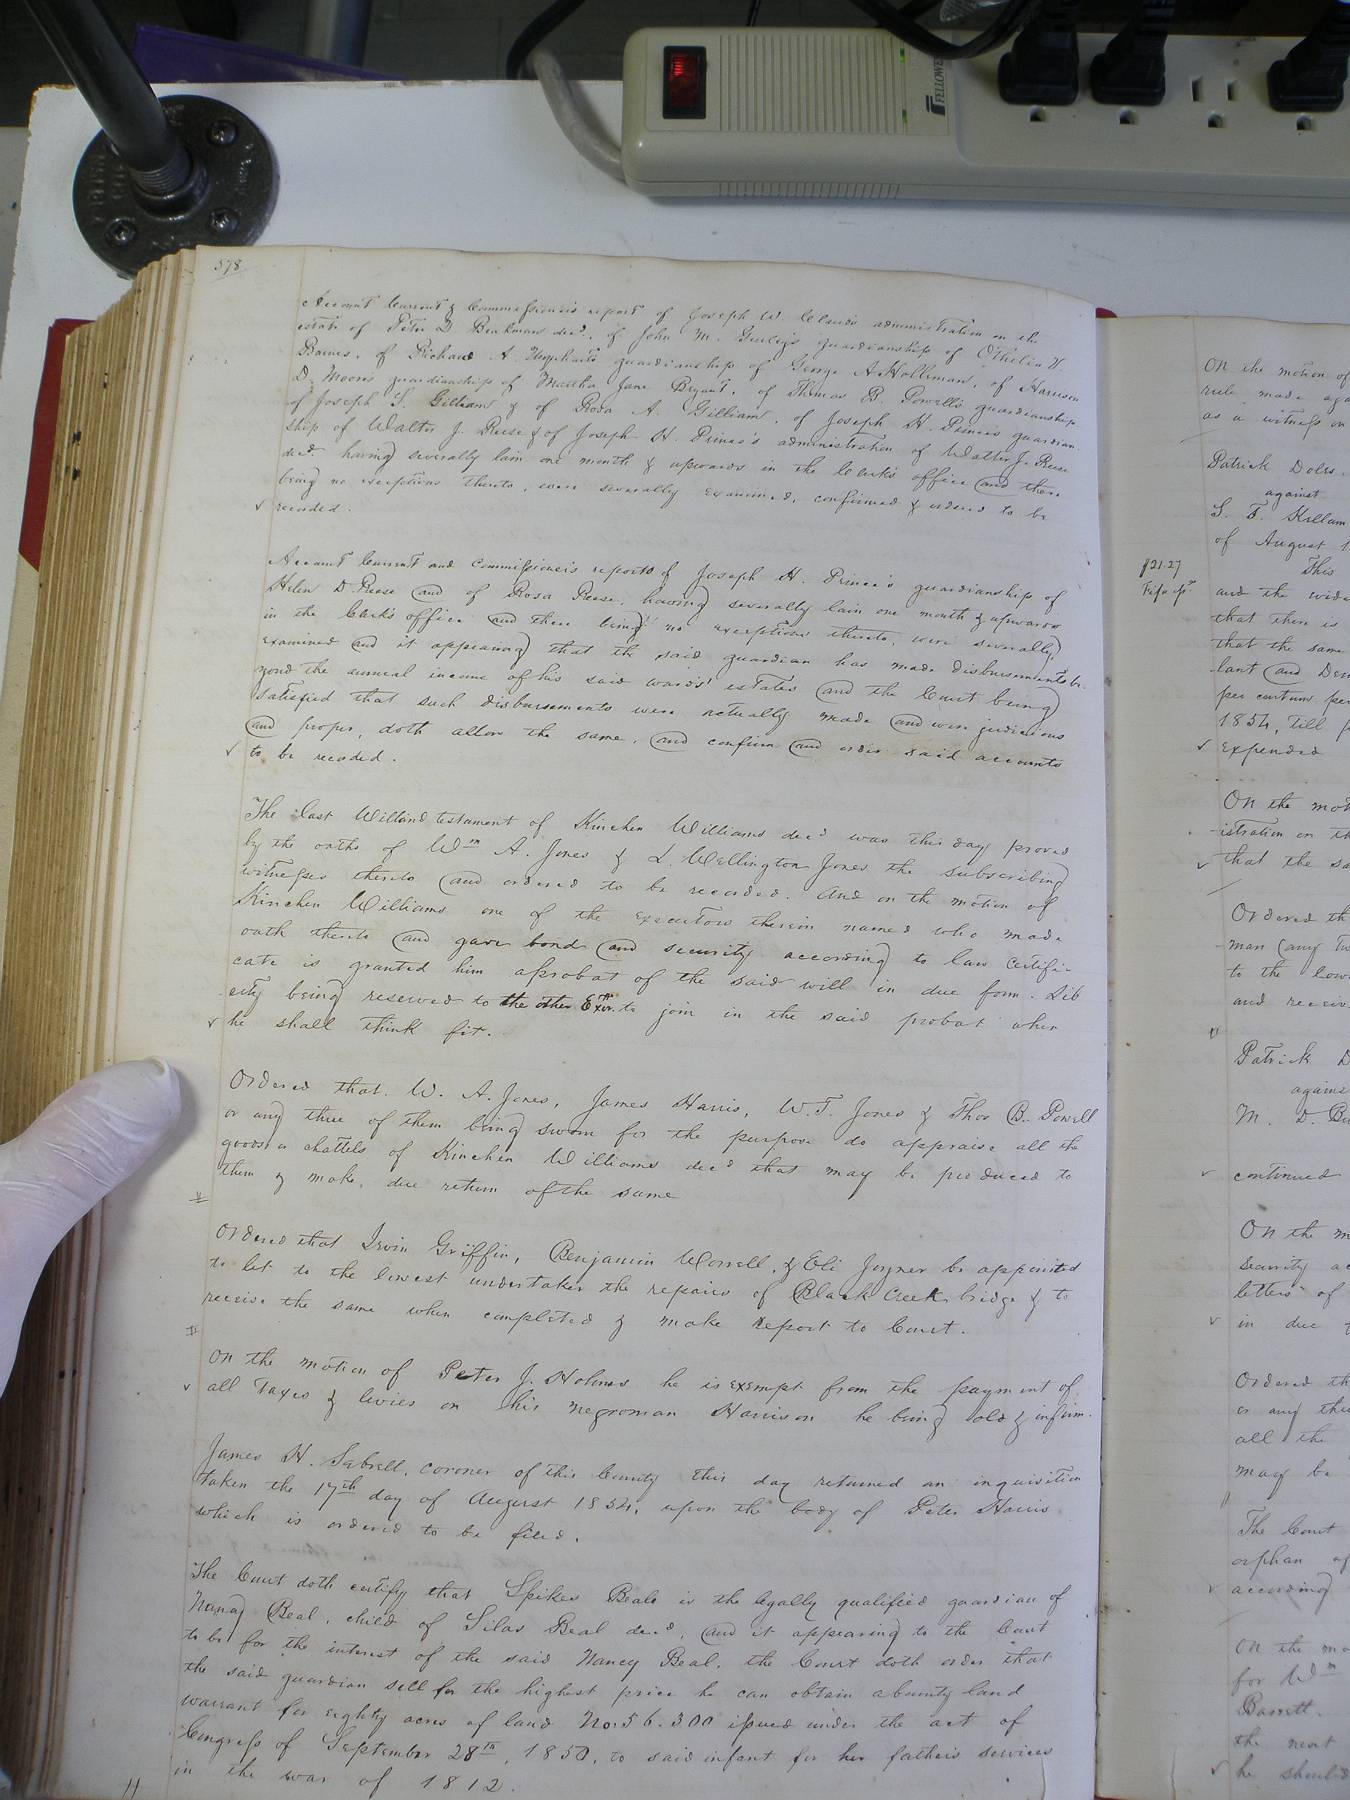 FELLOWES
578
Account Current & Commissioner's report of Joseph W. Claud's administration on the
estate of Peter D Beakman decd, of John M. Gurley's guardianship of Othelia W.
Barnes, of Richard A. Urquhart's guardianship of George A Holleman, of Harrison
D. Moore's guardianship of Martha Jane Bryant, of Thomas B. Powell's guardianship
of Joseph S. Gilliam & of Rosa A. Gilliam, of Joseph H. Prince's guardian-
ship of Walter J. Reese & of Joseph H. Prince's administration of Walter J. Reese
decd having severally lain one month & upwards in the Clerk's office and there
being no exceptions thereto, were severally examined, confirmed & ordered to be
recorded.
Account Current and Commissioner's reports of Joseph H. Prince's guardianship of
Helen D. Reese and of Rosa Reese, having severally lain one month & upwards
in the Clerk's office and there being no exceptions thereto, were severally
examined and it appearing that the said guardian has made disbursements be-
yond the annual income of his said wards' estates and the Court being
satisfied that such disbursements were actually made and were judicious
and proper, doth allow the same, and confirm and order said accounts
to be recorded.
The last Will and testament of Kinchen Williams decd was this day proved
by the oaths of Wm A. Jones & L. Wellington Jones the subscribing
witnesses thereto and ordered to be recorded. And on the motion of
Kinchen Williams one of the executors therein named who made
oath thereto and gave bond and security according to law certifi-
cate is granted him a probat of the said will in due form. Lib
erty being reserved to the other Exor. to join in the said probat when
he shall think fit.
Ordered that W. A. Jones, James Harris, W. T. Jones & Thos B. Powell
or any three of them being sworn for the purpose do appraise all the
goods & chattels of Kinchen Williams decd that may be produced to
them & make due return of the same
Ordered that Irvin Griffin, Benjamin Worrell, & Eli Joyner be appointed
to let to the lowest undertaker the repairs of Black Creek bridge & to
receive the same when completed & make report to Court.
On the motion of Peter J. Holmes he is exempt from the payment of
all Taxes & levies on his negroman Harrison he being old & infirm.
James H. Sebrell, coroner of this County this day returned an inquisition
taken the 17th day of August 1854, upon the body of Peter Harris
which is ordered to be filed.
The Court doth certify that Spikes Beale is the legally qualified guardian of
Nancy Beal, child of Silas Beal decd, and it appearing to the Court
to be for the interest of the said Nancy Beal, the Court doth order that
the said guardian sell for the highest price he can obtain a bounty land
warrant for eighty acres of land No. 56.300 issued under the act of
Congress of September 28th, 1850, to said infant for her father's services
in the war of 1812.
On the motion of
rule made aga
as a witness on
Patrick Doles
against
S. B. Killam
of August 1
$21.27
This
and the evide
that there is
that the same
lant and Den
per centum per
1854, till p
expended
On the mot
istration on th
that the sa
Ordered th
man (any tw
to the lowe
and receiv
Patrick D
against
M. D. Bu
continued
On the m
Security ac
letters of
in due f
Ordered th
or any thre
all the
may be
The Court
orphan of
according
On the mo
for Wm
Barrett.
the next
he should